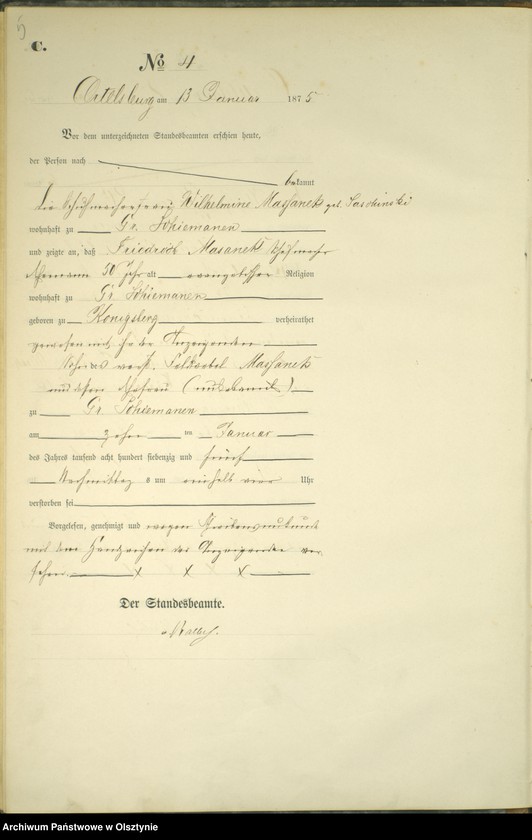 5
C.
No 4
Ortelsburg am 13 Januar 1875
Vor dem unterzeichneten Standesbeamten erschien heute,
der Person nach
bekannt
die Wilhelmine Massanek geb.
wohnhaft zu Gr. Schiemanen
und zeigte an, daß Friedrich Masanek
50 Jahr alt evangelischer Religion
wohnhaft zu Gr Schiemanen
geboren zu Königsberg verheirathet
gewesen mit ihr der Anzeigenden
Sohn des verst. Massanek
und dessen Ehefrau
zu Gr Schiemanen
am zehn ten Januar
des Jahres tausend acht hundert siebenzig und fünf
Nachmittag s um einhalb vier Uhr
verstorben sei
Vorgelesen, genehmigt und wegen
mit dem Handzeichen der Anzeigenden ver
sehen x x x
Der Standesbeamte.
Archiwum Państwowe w Olsztynie